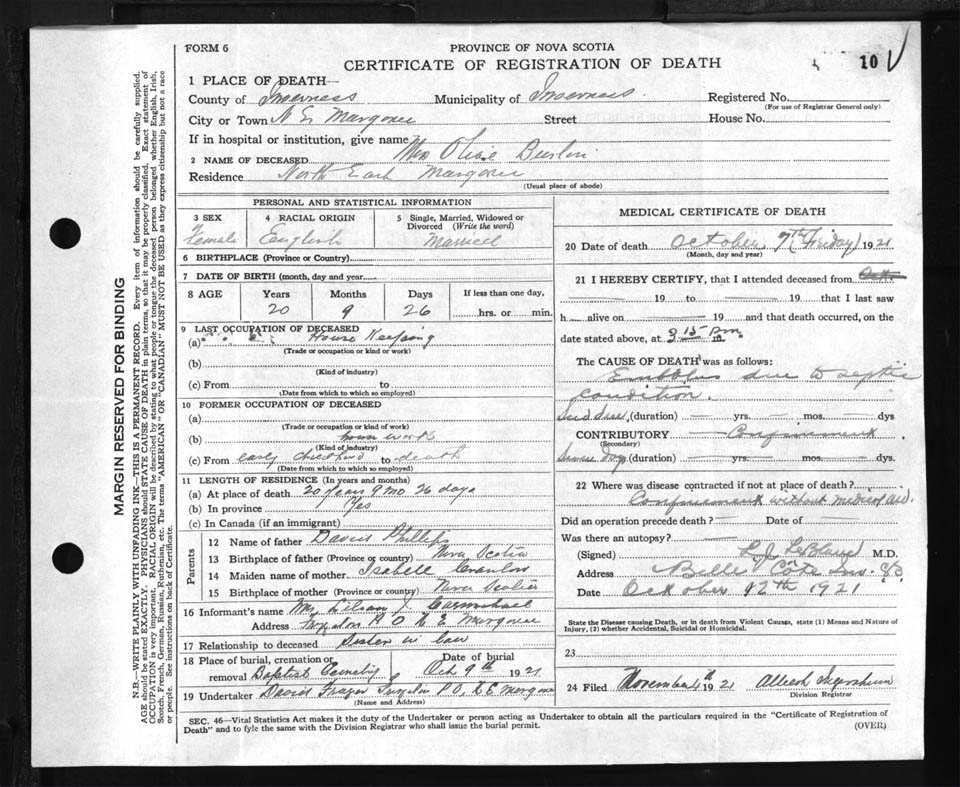 FORM 6
PROVINCE OF NOVA SCOTIA
CERTIFICATE OF REGISTRATION OF DEATH
10
1 PLACE OF DEATH—
County of Inverness Municipality of Inverness Registered No.
(For use of Registrar General only)
City or Town N E Margaree Street House No.
If in hospital or institution, give name
2 NAME OF DECEASED Mrs Olive
Residence North East Margaree
(Usual place of abode)
PERSONAL AND STATISTICAL INFORMATION
3 SEX 4 RACIAL ORIGIN 5 Single, Married, Widowed or Divorced (Write the word)
Female English Married
6 BIRTHPLACE (Province or Country)
7 DATE OF BIRTH (month, day and year)
8 AGE Years Months Days If less than one day,
20 9 26 hrs. or min.
9 LAST OCCUPATION OF DECEASED
(a) House Keeping
(Trade or occupation or kind or work)
(b)
(Kind of industry)
(c) From to
(Date from which to which so employed)
10 FORMER OCCUPATION OF DECEASED
(a)
(Trade or occupation or kind of work)
(b) house work
(Kind of industry)
(c) From early childhood to death
(Date from which to which so employed)
11 LENGTH OF RESIDENCE (In years and months)
(a) At place of death 20 years 9 mo 26 days
(b) In province Yes
(c) In Canada (if an immigrant)
Parents
12 Name of father David Phillips
13 Birthplace of father (Province or country) Nova Scotia
14 Maiden name of mother Isabell
15 Birthplace of mother (Province or country) Nova Scotia
16 Informant's name Carmichael
Address P O N E Margaree
17 Relationship to deceased Sister in law
18 Place of burial, cremation or removal Baptist Cemetery Date of burial Oct 9th 1921
19 Undertaker David Frazer P.O. N E Margaree
(Name and Address)
MEDICAL CERTIFICATE OF DEATH
20 Date of death October 7th (Friday) 1921
(Month, day and year)
21 I HEREBY CERTIFY, that I attended deceased from
19 to 19 that I last saw
h alive on 19 and that death occurred, on
date stated above, at 3 15 P.m.
The CAUSE OF DEATH was as follows:
Embolus due to septic
condition.
(duration) yrs. mos. dys
CONTRIBUTORY Confinement
(Secondary)
Seven Days (duration) yrs. mos. dys.
22 Where was disease contracted if not at place of death?
Confinement without medical aid.
Did an operation precede death? Date of
Was there an autopsy?
(Signed) LeBlanc M.D.
Address Belle Cote
Date October 12th 1921
State the Disease causing Death, or in death from Violent Causes, state (1) Means and Nature of Injury, (2) whether Accidental, Suicidal or Homicidal.
23
24 Filed November 1921 Albert
Division Registrar
SEC. 46—Vital Statistics Act makes it the duty of the Undertaker or person acting as Undertaker to obtain all the particulars required in the "Certificate of Registration of
Death" and to fyle the same with the Division Registrar who shall issue the burial permit.
(OVER)
MARGIN RESERVED FOR BINDING
N.B.—WRITE PLAINLY WITH UNFADING INK—THIS IS A PERMANENT RECORD. Every item of information should be carefully supplied.
AGE should be stated EXACTLY. PHYSICIANS should STATE CAUSE OF DEATH in plain terms, so that it may be properly classified. Exact statement of
OCCUPATION is very important. RACIAL ORIGIN will be described by stating to what people or tongue the deceased person belonged whether English, Irish,
Scotch, French, German, Russian, Ruthenian, etc. The terms "AMERICAN" OR "CANADIAN" MUST NOT BE USED as they express citizenship but not a race
or people. See instructions on back of Certificate.